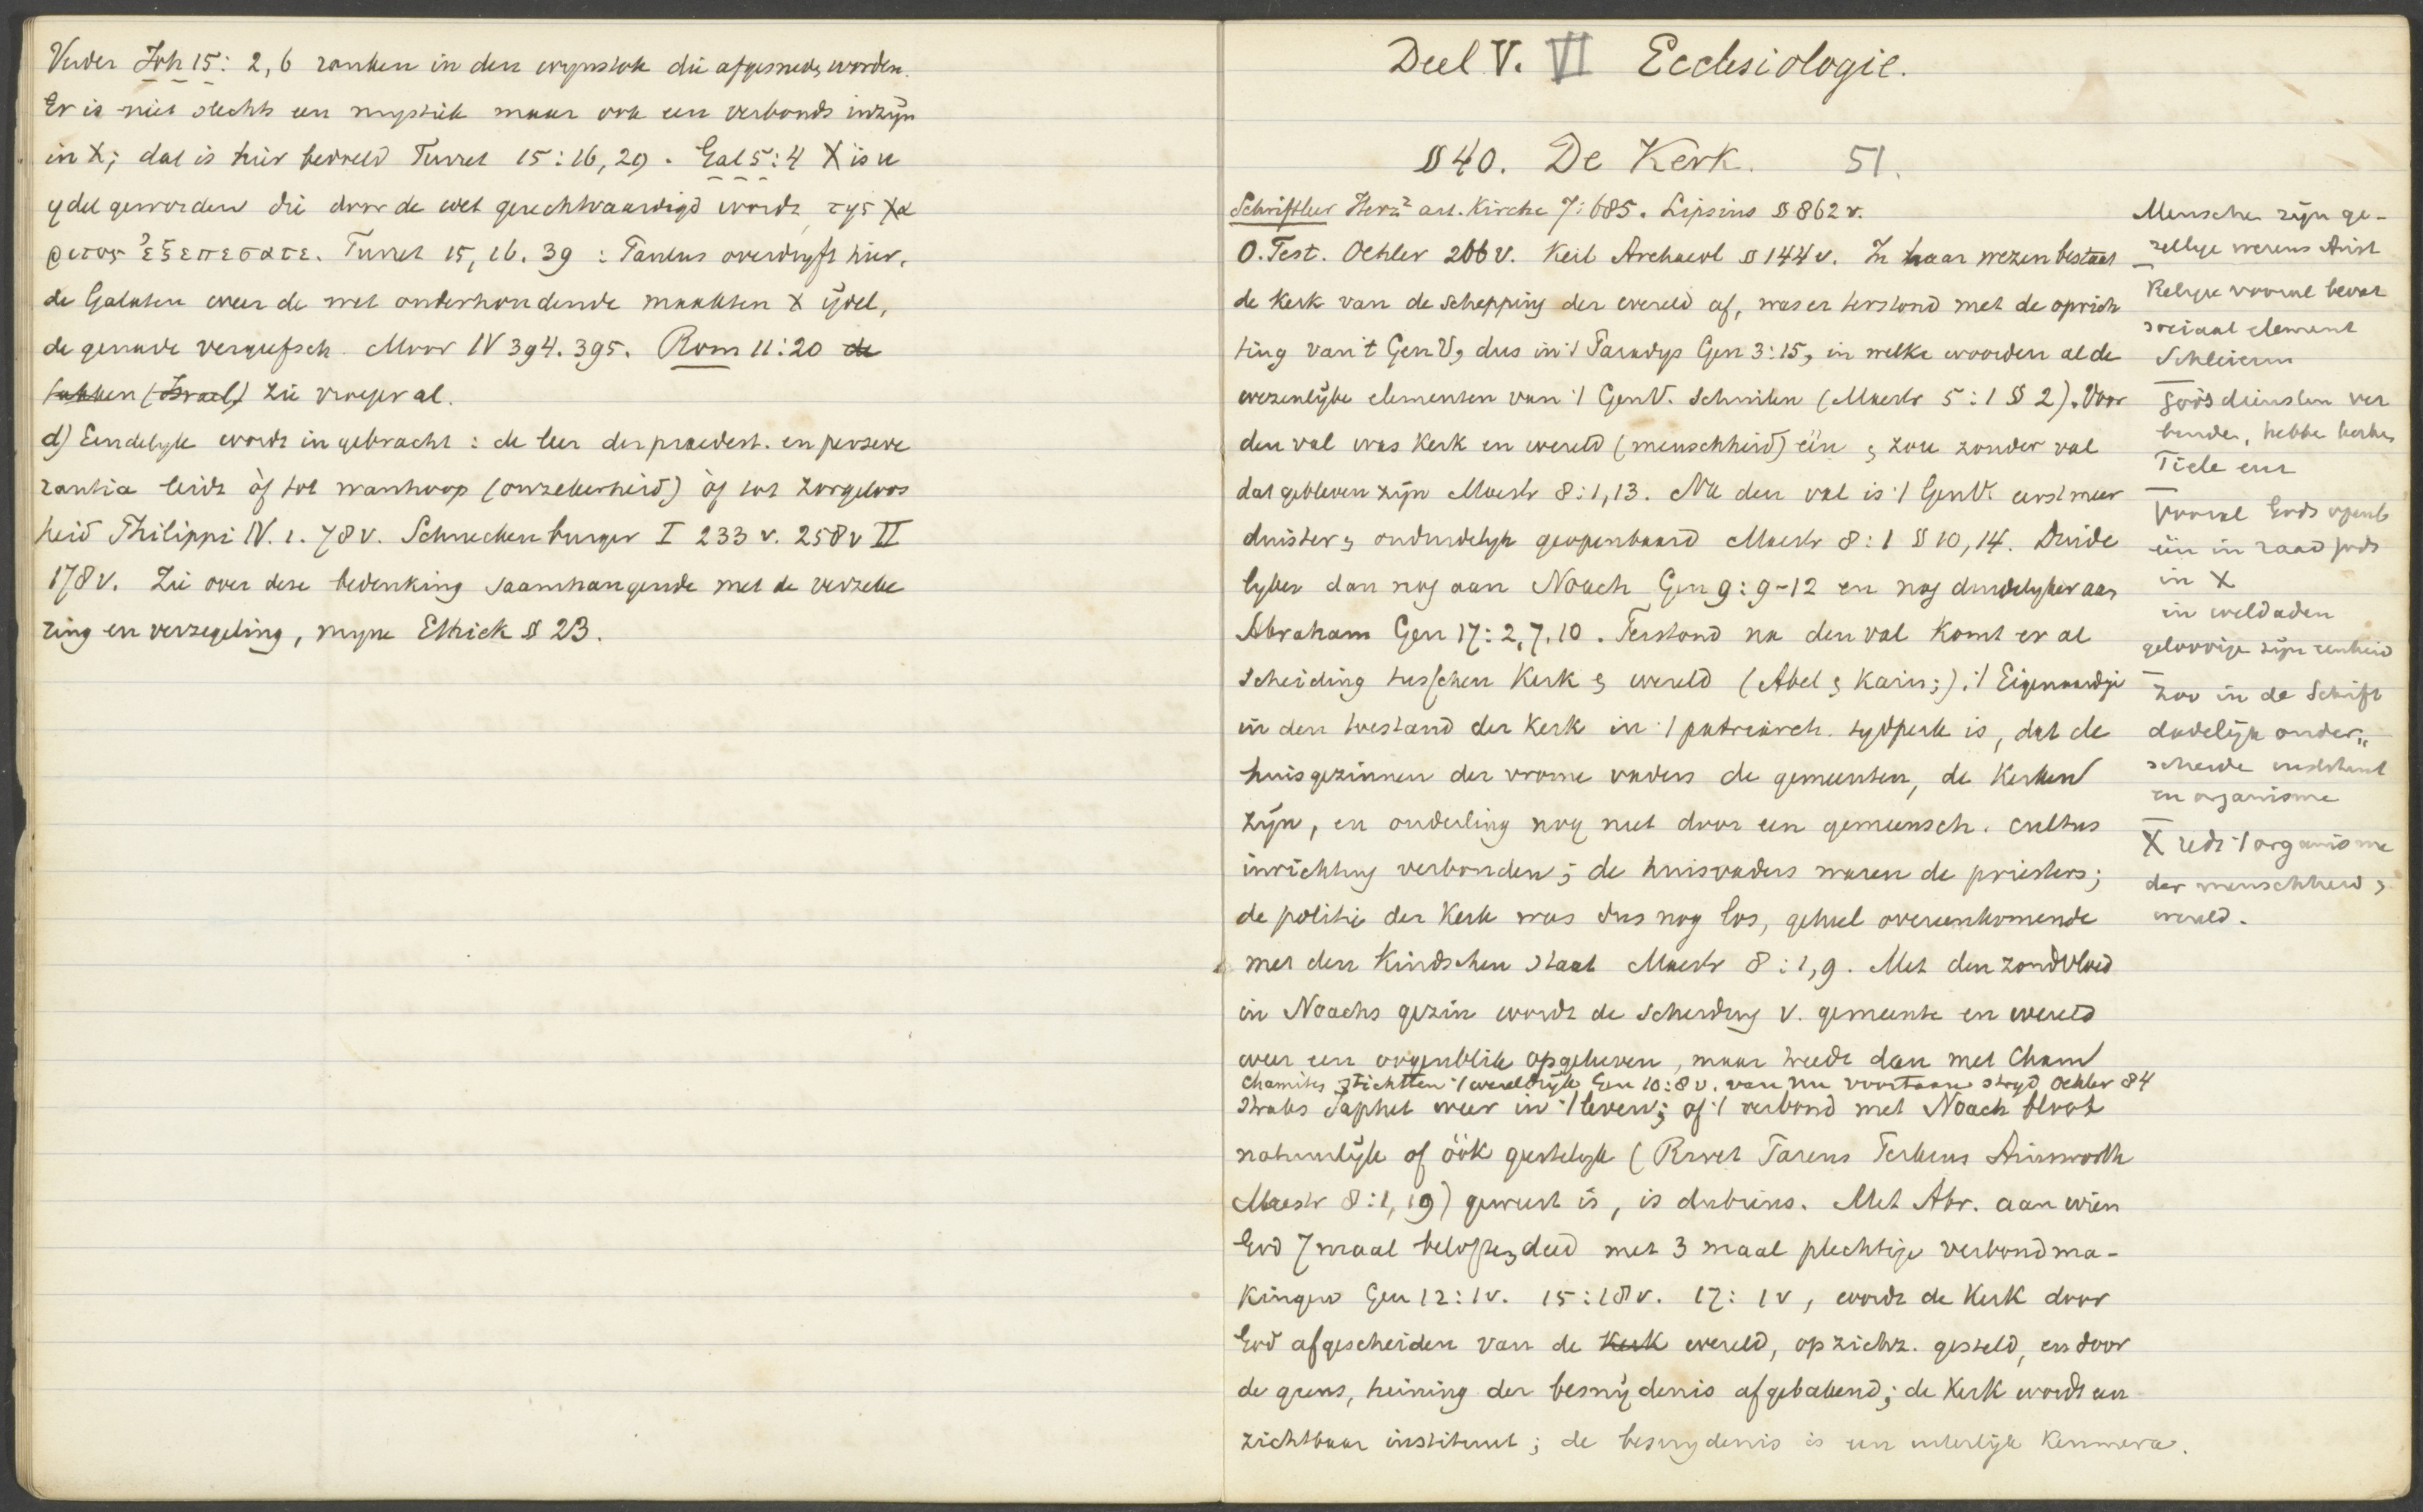 Verder Joh 15: 2, 6 ranken in den wijnstok die afgesneden worden.
Er is niet slechts een mystiek maar ook een verbonds inzijn
in X; dat is hier bedoeld Turret 15:16, 29. Gal 5:4 X is u
ydel geworden die door de wet gerechtvaardigd wordt, της χα
ριτος ἐξεπεσατε. Turret 15, 16. 39: Paulus overdryft hier.
de Galaten weer de wet onderhoudende maakten X ijdel,
de genade vergeefsch. Moor IV 394. 395. Rom 11:20 de
takken (Israel) zie vroeger al.
d) Eindelyk wordt ingebracht: de leer der praedest. en perseve
rantia leidt òf tot wanhoop (onzekerheid) òf tot zorgeloos
heid Philippi IV. 1. 78v. Schneckenburger I 233 v. 258v II
178v. Zie over deze bedenking saamhangende met de verzeke
ring en verzegeling, myne Ethiek § 23.
Deel V. VI Ecclesiologie.
§ 40. De Kerk. 51.
Schriftleer Herz² art. Kirche 7:685. Lipsius § 862 v.
O. Test. Oehler 206 v. Keil Archaeol § 144 v. In haar wezen bestaat
de Kerk van de schepping der wereld af, was er terstond met de oprich
ting van 't GenV, dus in 't Paradys Gen 3:15, in welke woorden al de
wezenlijke elementen van 't GenV. schuilen (Maestr 5:1 § 2). Voor
den val was Kerk en wereld (menschheid) één & zou zonder val
dat gebleven zijn Maestr 8:1,13. Na den val is 't GenV. eerst meer
duister & onduidelyk geopenbaard Maestr 8:1 § 10, 14. Duide
lyker dan nog aan Noach Gen 9:9-12 en nog duidelyker aan
Abraham Gen 17:2,7.10. Terstond na den val komt er al
scheiding tusschen Kerk & wereld (Abel & Kain;). 't Eigenaardige
in den toestand der Kerk in 't patriarch. tydperk is, dat de
huisgezinnen der vrome vaders de gemeenten, de Kerken
zijn, en onderling nog niet door een gemeensch. cultus
inrichting verbonden; de huisvaders waren de priesters;
de politie der Kerk was dus nog los, geheel overeenkomende
met den Kindschen staat Maestr 8:1,9. Met den zondvloed
in Noachs gezin wordt de scheiding v. gemeente en wereld
weer een oogenblik opgeheven, maar treedt dan met Cham
Chamites stichtten 't wereldrijk Gen 10:8v. van nu voortaan stryd Oehler 84
straks Japhet weer in 't leven; of 't verbond met Noach bloot
natuurlijk of óók geestelyk (Rivet Pareus Perkins Ainsworth
Maestr 8:1, 19) geweest is, is dubieus. Met Abr. aan wien
God 7 maal beloften deed met 3 maal plechtige verbondma-
kingen Gen 12:1v. 15:18v. 17:1v, wordt de Kerk door
God afgescheiden van de Kerk wereld, op zichz. gesteld, en door
de grens, heining der besnijdenis afgebakend; de Kerk wordt een
zichtbaar instituut; de besnydenis is een uiterlijk Kenmerk.
Menschen zijn ge-
zellige wezens Arist
Religie vooral bevat
sociaal element
Schleierm
Godsdiensten ver
binden, hebben kerken
Tiele
Vooral Gods openb
één in raad Gods
in X
in weldaden
geloovige zijn eenheid
Zoo in de Schrift
dadelijk onder„
scheide instituut
en organisme
X redt 't organisme
der menschheid &
wereld.